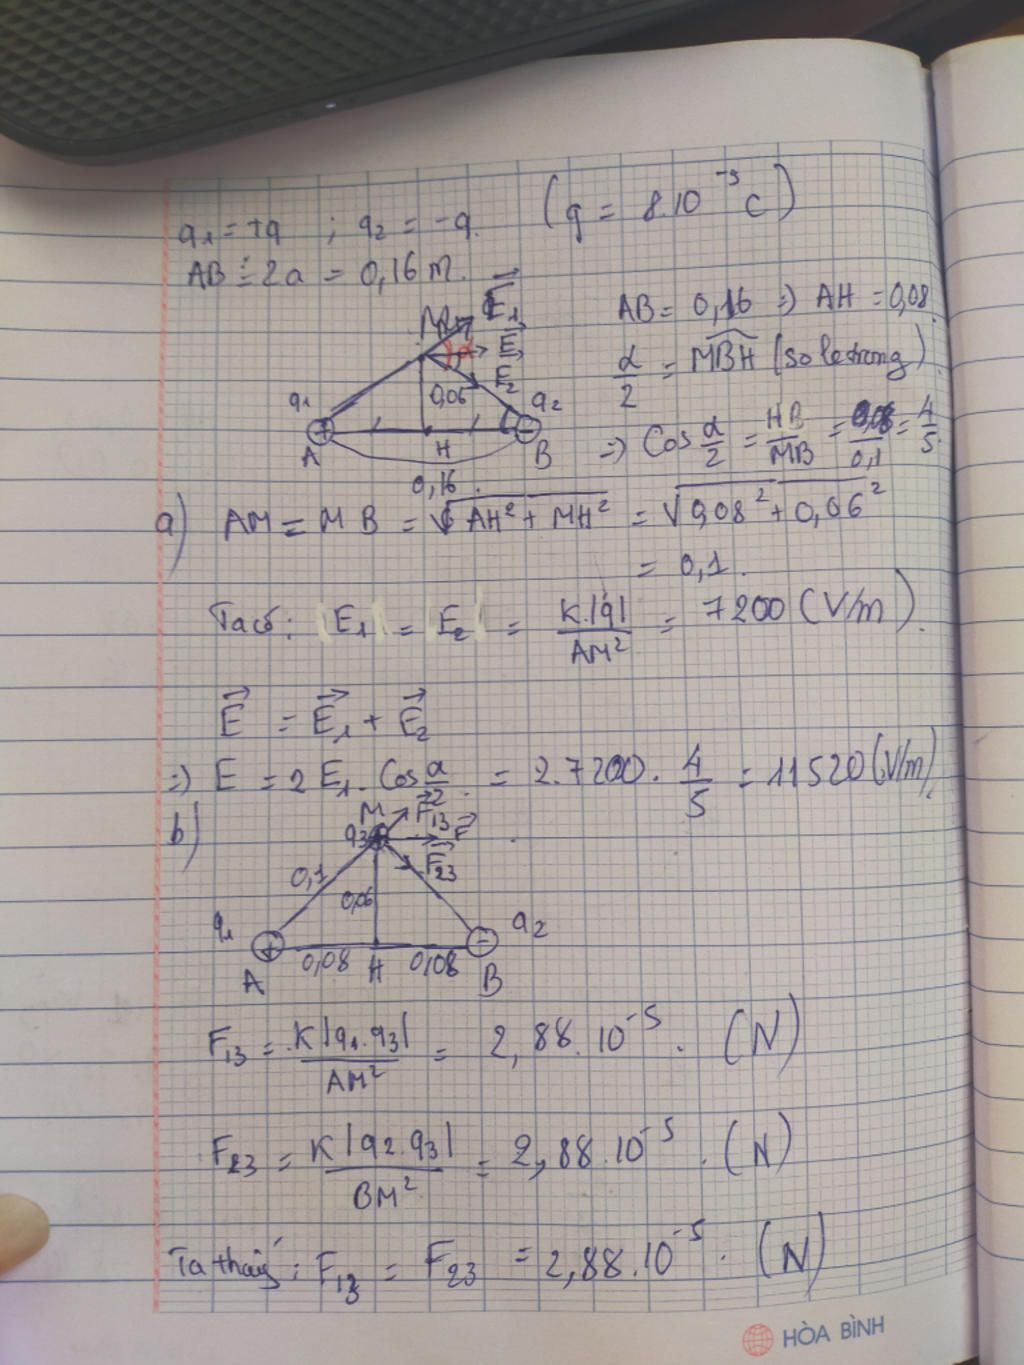 q₁ = +q ; q₂ = -q. (q = 8.10⁻⁹ C)
AB = 2a = 0,16 m.
AB = 0,16 => AH = 0,08
α/2 = MBH (so le trong)
=> Cos α/2 = HB/MB = 0,08/0,1 = 4/5.
M E₁
α E
E₂
0,06
q₁ q₂
+ -
A H B
0,16
a) AM = MB = √AH² + MH² = √0,08² + 0,06²
= 0,1.
Ta có: |E₁| = |E₂| = K.|q|/AM² = 7200 (V/m).
E = E₁ + E₂
=> E = 2 E₁. Cos α/2 = 2.7200. 4/5 = 11520 (V/m).
b)
M F₁₃
q₃ F
F₂₃
0,1
0,06
q₁ q₂
+ -
0,08 H 0,08
A B
F₁₃ = K|q₁.q₃|/AM² = 2,88.10⁻⁵. (N)
F₂₃ = K|q₂.q₃|/BM² = 2,88.10⁻⁵. (N)
Ta thấy: F₁₃ = F₂₃ = 2,88.10⁻⁵. (N)
HÒA BÌNH